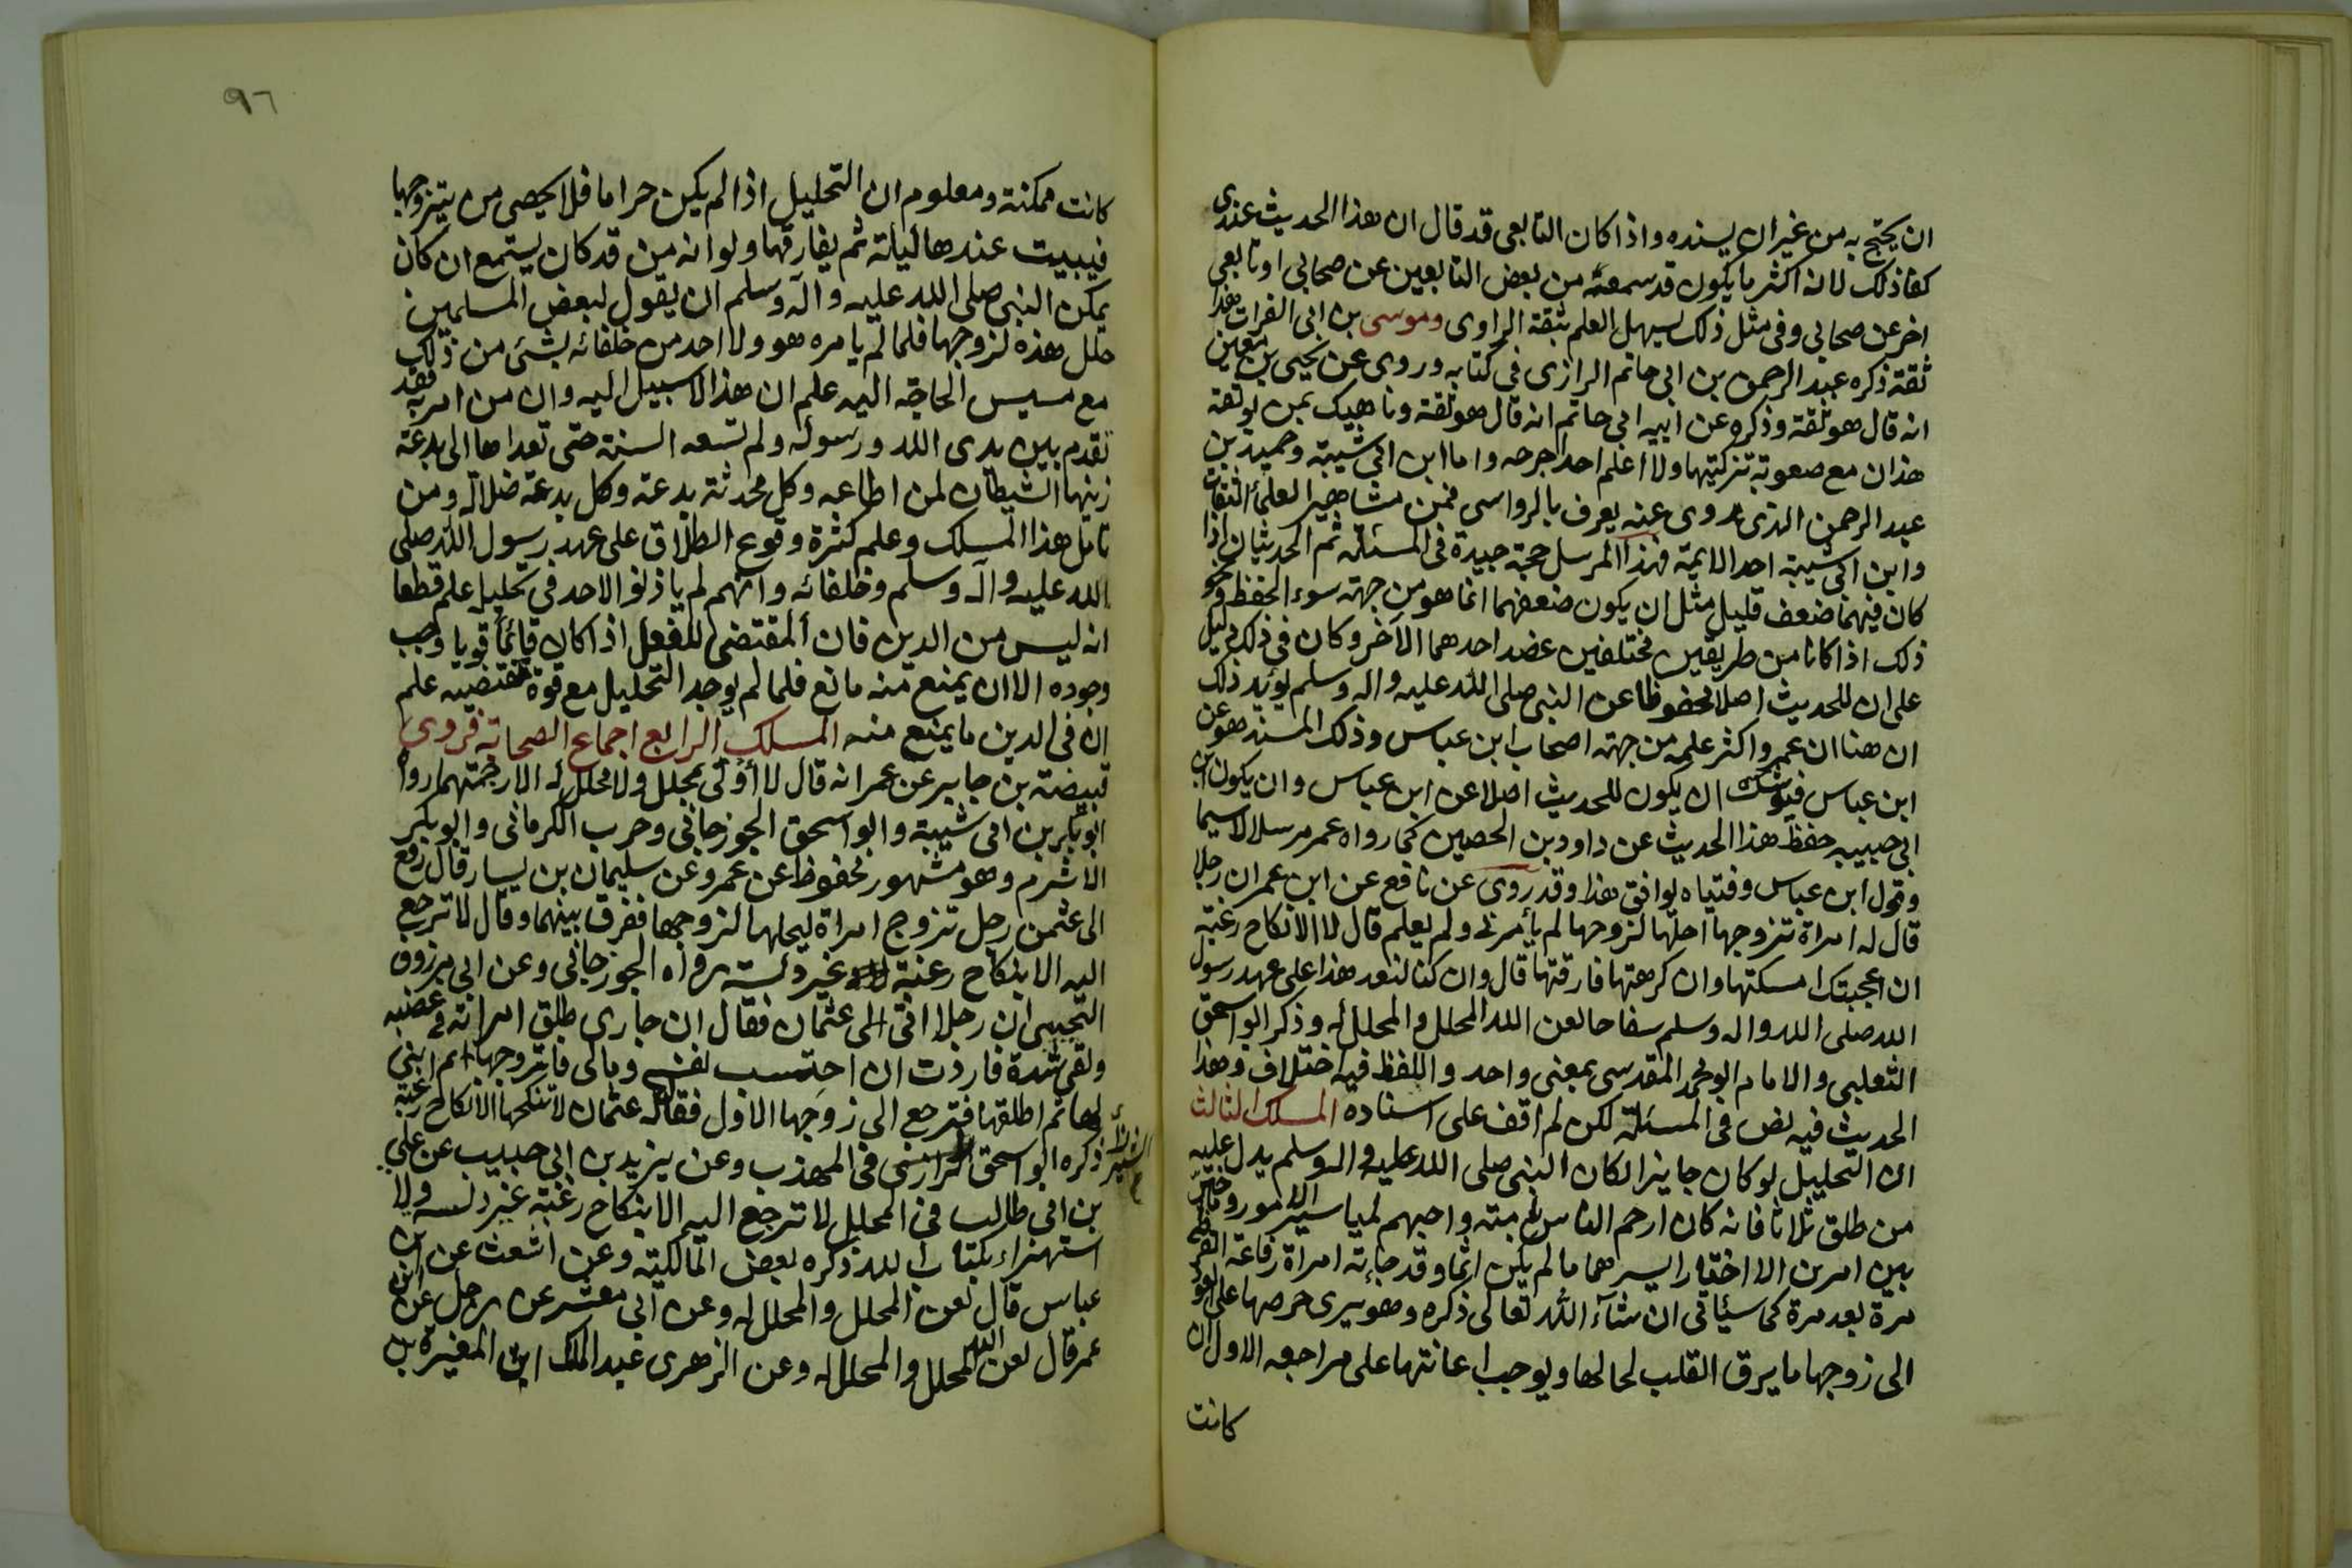 ان يحتج به من غير ان يسنده واذا كان التابعى قد قال ان هذا الحديث عندى
كفا ذلك لانه اكثر ما يكون قد سمعه من بعض التابعين عن صحابى او تابعى
اخر عن صحابى وفى مثل ذلك يسهل العلم بثقة الراوى وموسى بن ابى الفرات هذا
ثقة ذكره عبد الرحمن بن ابى حاتم الرازى فى كتابه وروى عن يحيى بن معين
انه قال هو ثقة وذكره عن ابيه ابى حاتم انه قال هو ثقة وناهيك بمن يوثقه
هذان مع صعوبة تزكيتهما ولا اعلم احدا جرحه واما ابن ابى شيبة وحميد بن
عبد الرحمن الذى روى عنه يعرف بالرواسى فمن مشاهير العلمأ الثقات
وابن ابى شيبة احد الايمة فهذا المرسل حجة جيدة فى المسئلة ثم الحديثان اذا
كان فيهما ضعف قليل مثل ان يكون ضعفهما انما هو من جهة سوء الحفظ ونحو
ذلك اذا كانا من طريقين مختلفين عضد احدهما الآخر وكان فى ذلك دليل
على ان للحديث اصلا محفوظا عن النبى صلى الله عليه واله وسلم يؤيد ذلك
ان هنا ان عمرو اكثر علمه من جهة اصحاب ابن عباس وذلك المسند هو عن
ابن عباس فيوشك ان يكون للحديث اصلا عن ابن عباس وان يكون ابن
ابى حبيبه حفظ هذا الحديث عن داود بن الحصين كما رواه عمر مرسلا لاسيما
وقول ابن عباس وفتياه يوافق هذا وقد روى عن نافع عن ابن عمر ان رجلا
قال له امراة تزوجها احلها لزوجها لم يأمرنى ولم يعلم قال لا الا نكاح رغبة
ان اعجبتك امسكتها وان كرهتها فارقتها قال وان كنا لنعد هذا على عهد رسول
الله صلى الله واله وسلم سفاحا لعن الله المحلل والمحلل له وذكر ابو اسحق
الثعلبى والامام ابو محمد المقدسى بمعنى واحد واللفظ فيه اختلاف وهذا
الحديث فيه نص فى المسئلة لكن لم اقف على اسناده المسلك الثالث
ان التحليل لو كان جايزا لكان النبى صلى الله عليه واله وسلم يدل عليه
من طلق ثلاثا فانه كان ارحم الناس بامته واحبهم لمياسير الامور وما خير
بين امرين الا اختار ايسرهما ما لم يكن اثما وقد جاءته امراة رفاعة القرظى
مرة بعد مرة كما سيأتى ان شآء الله تعالى ذكره وهو يرى حرصها على العود
الى زوجها ما يرق القلب لحالها ويوجب اعانتها على مراجعه الاول ان
كانت
٩٦
كانت ممكنة ومعلوم ان التحليل اذا لم يكن حراما فلا يحصى من يتزوجها
فيبيت عندها ليلة ثم يفارقها ولو انه من قد كان يستمع ان كان
يمكن النبى صلى الله عليه وآله وسلم ان يقول لبعض المسلمين
حلل هذه لزوجها فلما لم يامره هو ولا احد من خلفائه بشئ من ذلك
مع مسيس الحاجة اليه علم ان هذا لا سبيل اليه وان من امر به فقد
تقدم بين يدى الله ورسوله ولم تسعه السنة حتى تعداها الى بدعة
زينها الشيطان لمن اطاعه وكل محدثة بدعة وكل بدعة ضلالة ومن
تامل هذا المسلك وعلم كثرة وقوع الطلاق على عهد رسول الله صلى
الله عليه واله وسلم وخلفائه وانهم لم ياذنوا لاحد فى تحليل علم قطعا
انه ليس من الدين فان المقتضى للفعل اذا كان قائما قويا وجب
وجوده الا ان يمنع منه مانع فلما لم يوجد التحليل مع قوة مقتضيه علم
ان فى الدين ما يمنع منه المسلك الرابع اجماع الصحابة فروى
قبيضة بن جابر عن عمر انه قال لا أوتى بمحلل ولا محلل له الا رجمتهما رواه
ابو بكر بن ابى شيبة وابو اسحق الجوزجانى وحرب الكرمانى وابو بكر
الاشرم وهو مشهور محفوظ عن عمر وعن سليمان بن يسار قال رفع
الى عثمن رجل تزوج امراة ليحلها لزوجها ففرق بينهما وقال لا ترجع
اليه الا بنكاح رغبة غير دلسة رواه الجوزجانى وعن ابى مرزوق
التجيبى ان رجلا اتى الى عثمان فقال ان جارى طلق امراته فى غضبه
ولقى شدة فاردت ان احتسب لفنسى ومالى فاتزوجها ثم ابنى
بها ثم اطلقها فترجع الى زوجها الاول فقال له عثمان لا تنكحها الا نكاح رغبة
ذكره ابو اسحق الشيرازى فى المهذب وعن يزيد بن ابى حبيب عن على
بن ابى طالب فى المحلل لا ترجع اليه الا بنكاح رغبة غير دلسه ولا
استهزاء بكتاب الله ذكره بعض المالكية وعن اشعث عن ابن
عباس قال لعن المحلل والمحلل له وعن ابى معشر عن رجل عن ابن
عمر قال لعن الله المحلل والمحلل له وعن الزهرى عبد الملك ابن المغيرة بن